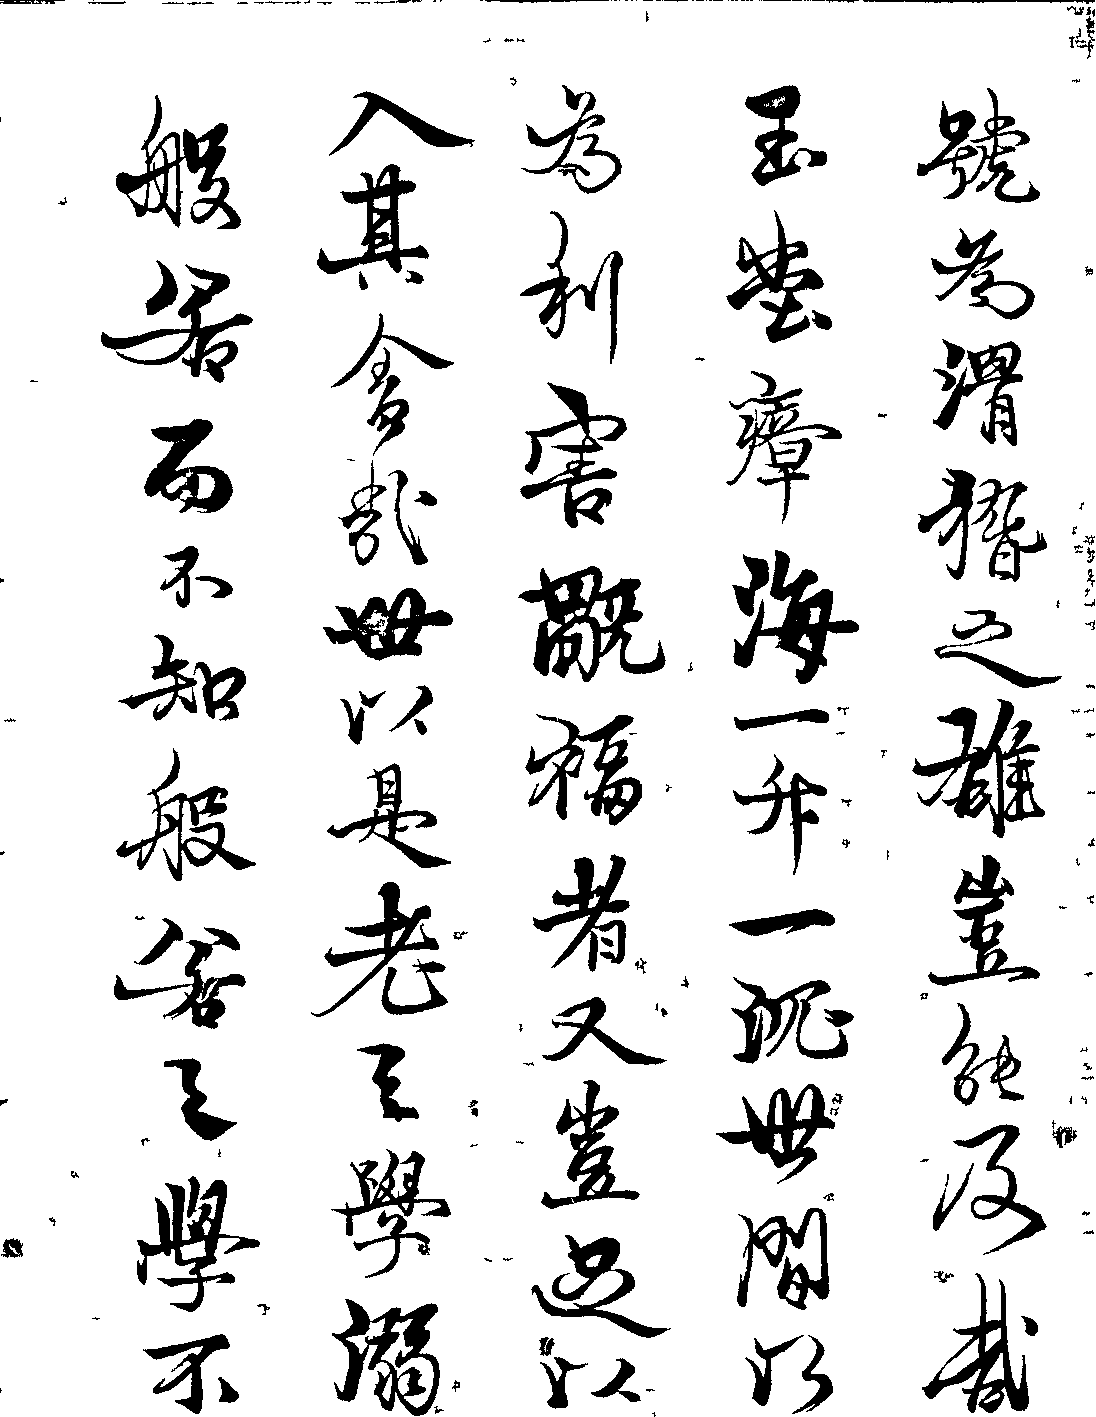 號為滑稽之雄豈能及哉
玉堂瘴海一升一沉世間所
為利害福者又豈足以
入其舍哉世以是老之學溺
般若而不知般若之學不